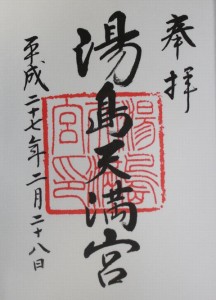 奉拝
湯島天満宮
平成二十七年二月二十八日